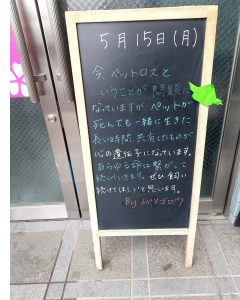 5月15日(月)
今、ペットロスと
いうことが問題に
なっていますが、ペットが
死んでも一緒に生きた
長い時間、共有したものが
心の遺伝子になっています。
あらゆる命は繋がって
続いていきます。ぜひ飼い
続けてほしいと思います。
By ムツゴロウ